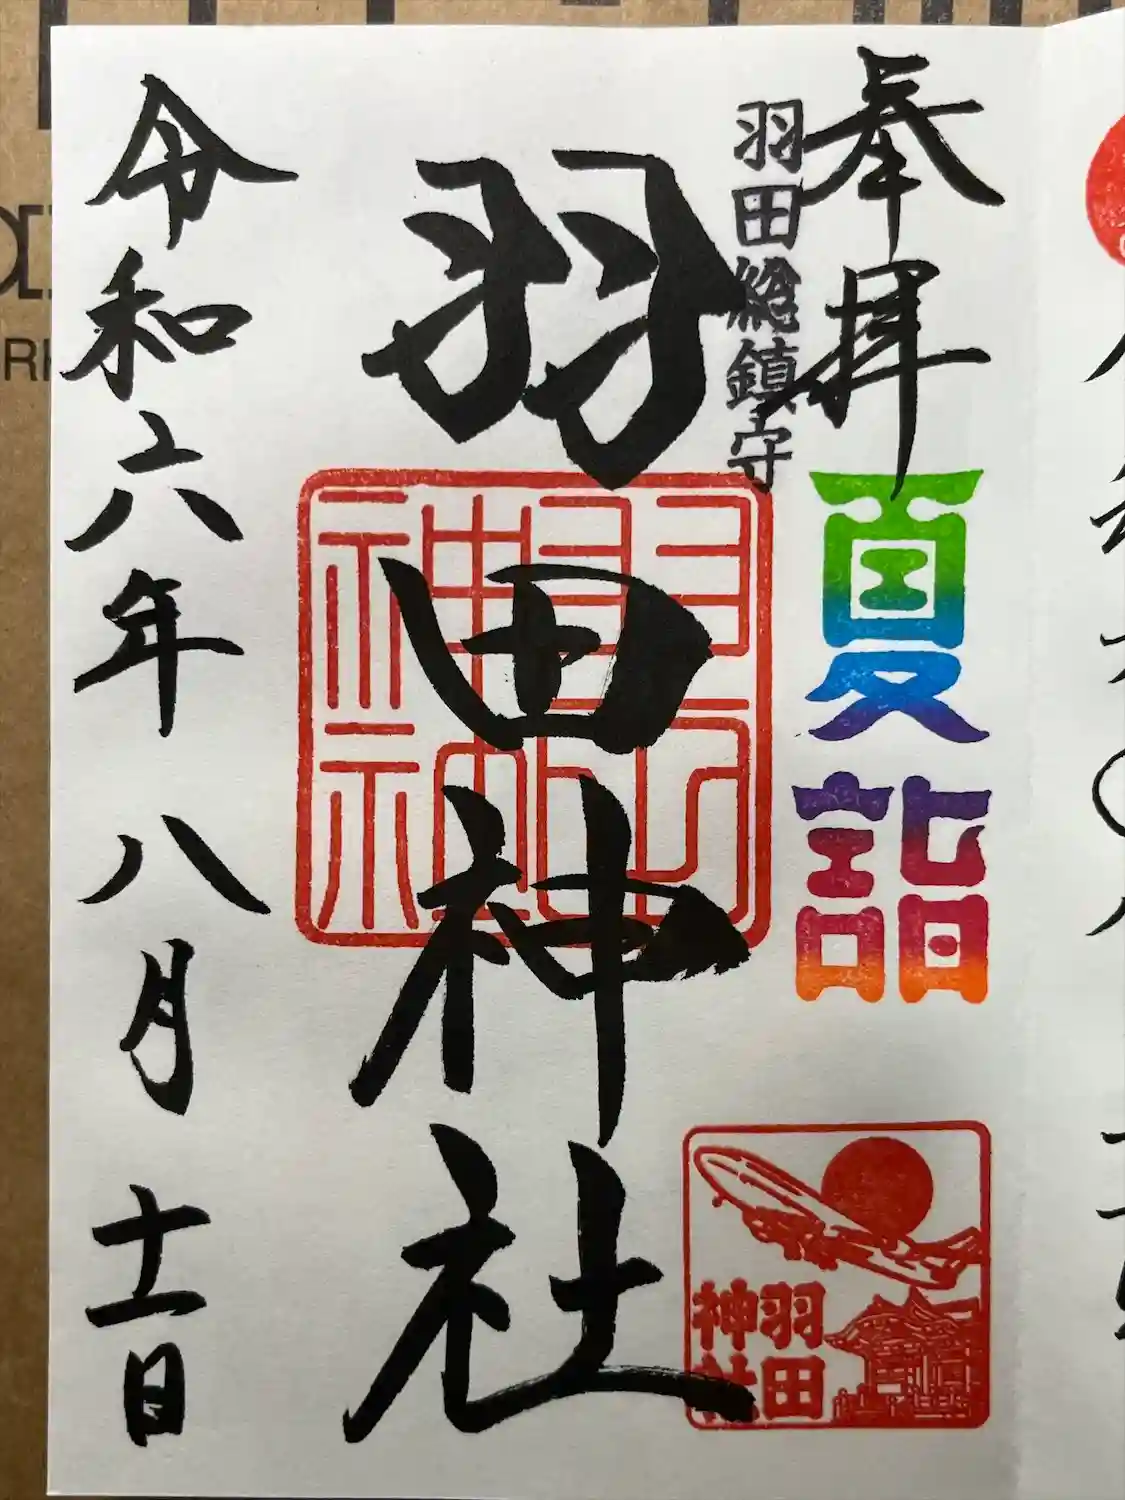 奉拝
夏詣
羽田総鎮守
羽田神社
羽田
神社
羽田
神社
令和六年八月十一日